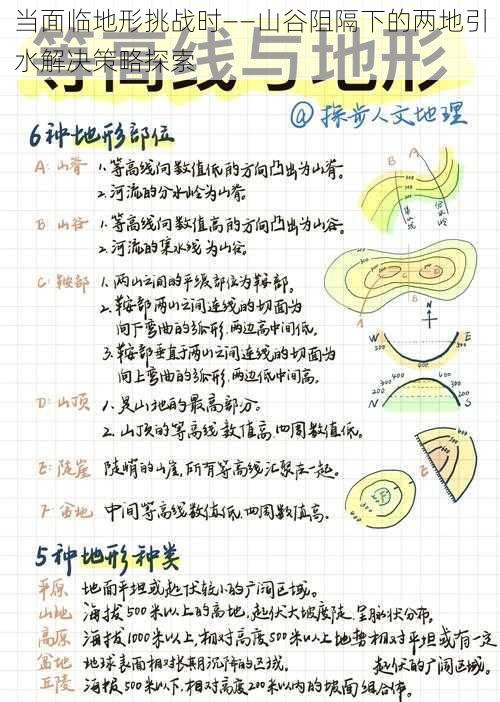 当面临地形挑战时——山谷阻隔下的两地引
水解决策略探索
等高线与地形
@探步人文地理
6种地形部位
A: 山脊 1.等高线向数值低的方向凸出为山脊。
2.河流的分水岭为山脊。
B: 山谷 1.等高线向数值高的方向凸出为山谷。
2.河流的集水线为山谷。
C: 鞍部 1.两山之间的平缓部位为鞍部。
2.鞍部两山之间连线的切面为
向下弯曲的弧形,两边高中间低。
3.鞍部垂直于两山之间连线的切面为
向上弯曲的弧形,两边低中间高。
D: 山顶 1.是山地的最高部分。
2.山顶的等高线数值高,四周数值低。
E: 陡崖 陡峭的山崖,所有等高线汇聚在一起。
F: 盆地 中间等高线数值低,四周数值高。
5种地形种类
平原 地面平坦或起伏较小的广阔区域。
山地 海拔500米以上的高地,起伏大坡度陡,呈脉状分布。
高原 海拔1000米以上,相对高度500米以上地势相对平坦或有一定
起伏的广阔区域。
盆地 地球表面相对长期沉降的区域。
丘陵 海拔500米以下,相对高度200米以内的坡面组合体。
B
A
集水线
分水岭
C
A
B
N
W E
300 300
400
N S
E